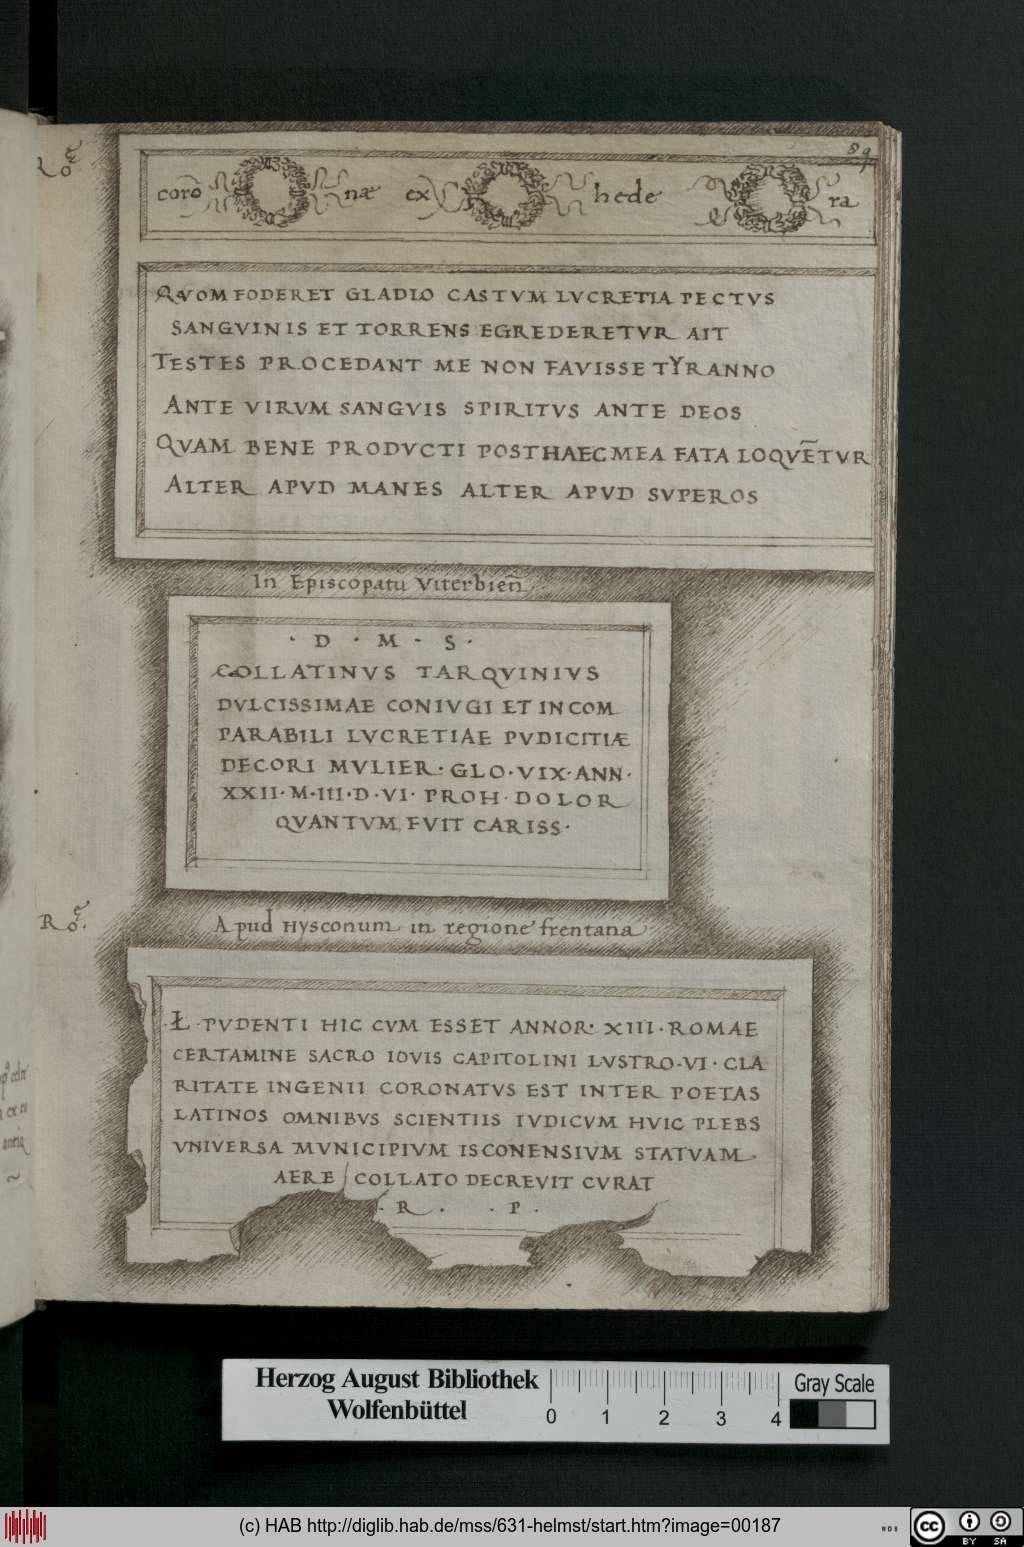 89
Roē
coro næ ex hede ra
QVOM FODERET GLADIO CASTVM LVCRETIA PECTVS
SANGVINIS ET TORRENS EGREDERETVR AIT
TESTES PROCEDANT ME NON FAVISSE TYRANNO
ANTE VIRVM SANGVIS SPIRITVS ANTE DEOS
QVAM BENE PRODVCTI POST HAEC MEA FATA LOQVE͞TVR
ALTER APVD MANES ALTER APVD SVPEROS
In Episcopatu Viterbien̄
· D · M · S ·
COLLATINVS TARQVINIVS
DVLCISSIMAE CONIVGI ET INCOM
PARABILI LVCRETIAE PVDICITIÆ
DECORI MVLIER· GLO·VIX·ANN·
XXII·M·III·D·VI· PROH DOLOR
QVANTVM FVIT CARISS·
Roē.
Apud Hysconum in regione frentana
Ł· PVDENTI HIC CVM ESSET ANNOR· XIII·ROMAE
CERTAMINE SACRO IOVIS CAPITOLINI LVSTRO·VI· CLA
RITATE INGENII CORONATVS EST INTER POETAS
LATINOS OMNIBVS SCIENTIIS IVDICVM HVIC PLEBS
VNIVERSA MVNICIPIVM ISCONENSIVM STATVAM·
AERE COLLATO DECREVIT CVRAT
· R · · P ·
Herzog August Bibliothek
Wolfenbüttel
0 1 2 3 4
Gray Scale
(c) HAB http://diglib.hab.de/mss/631-helmst/start.htm?image=00187
WDB
cc BY SA